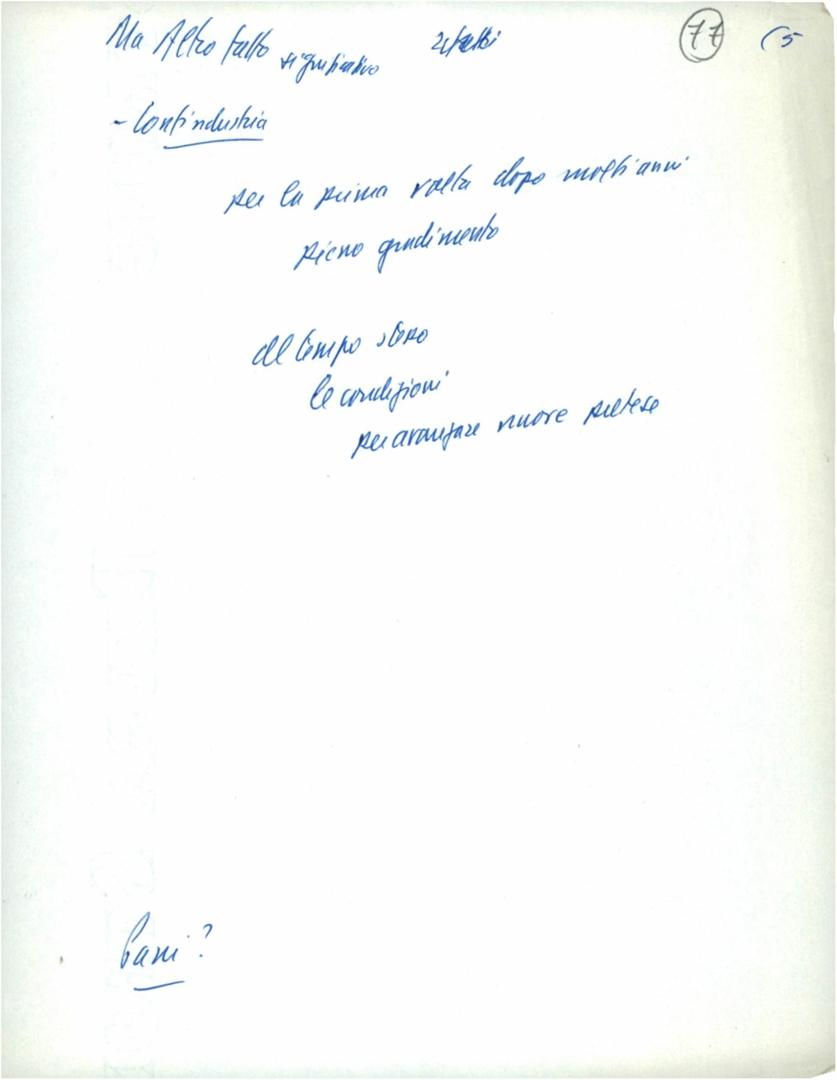 Ma Altro fatto significativo 77 5
- Confindustria
per la prima volta dopo molti anni
pieno gradimento
al tempo stesso
le condizioni
per avanzare nuove pretese